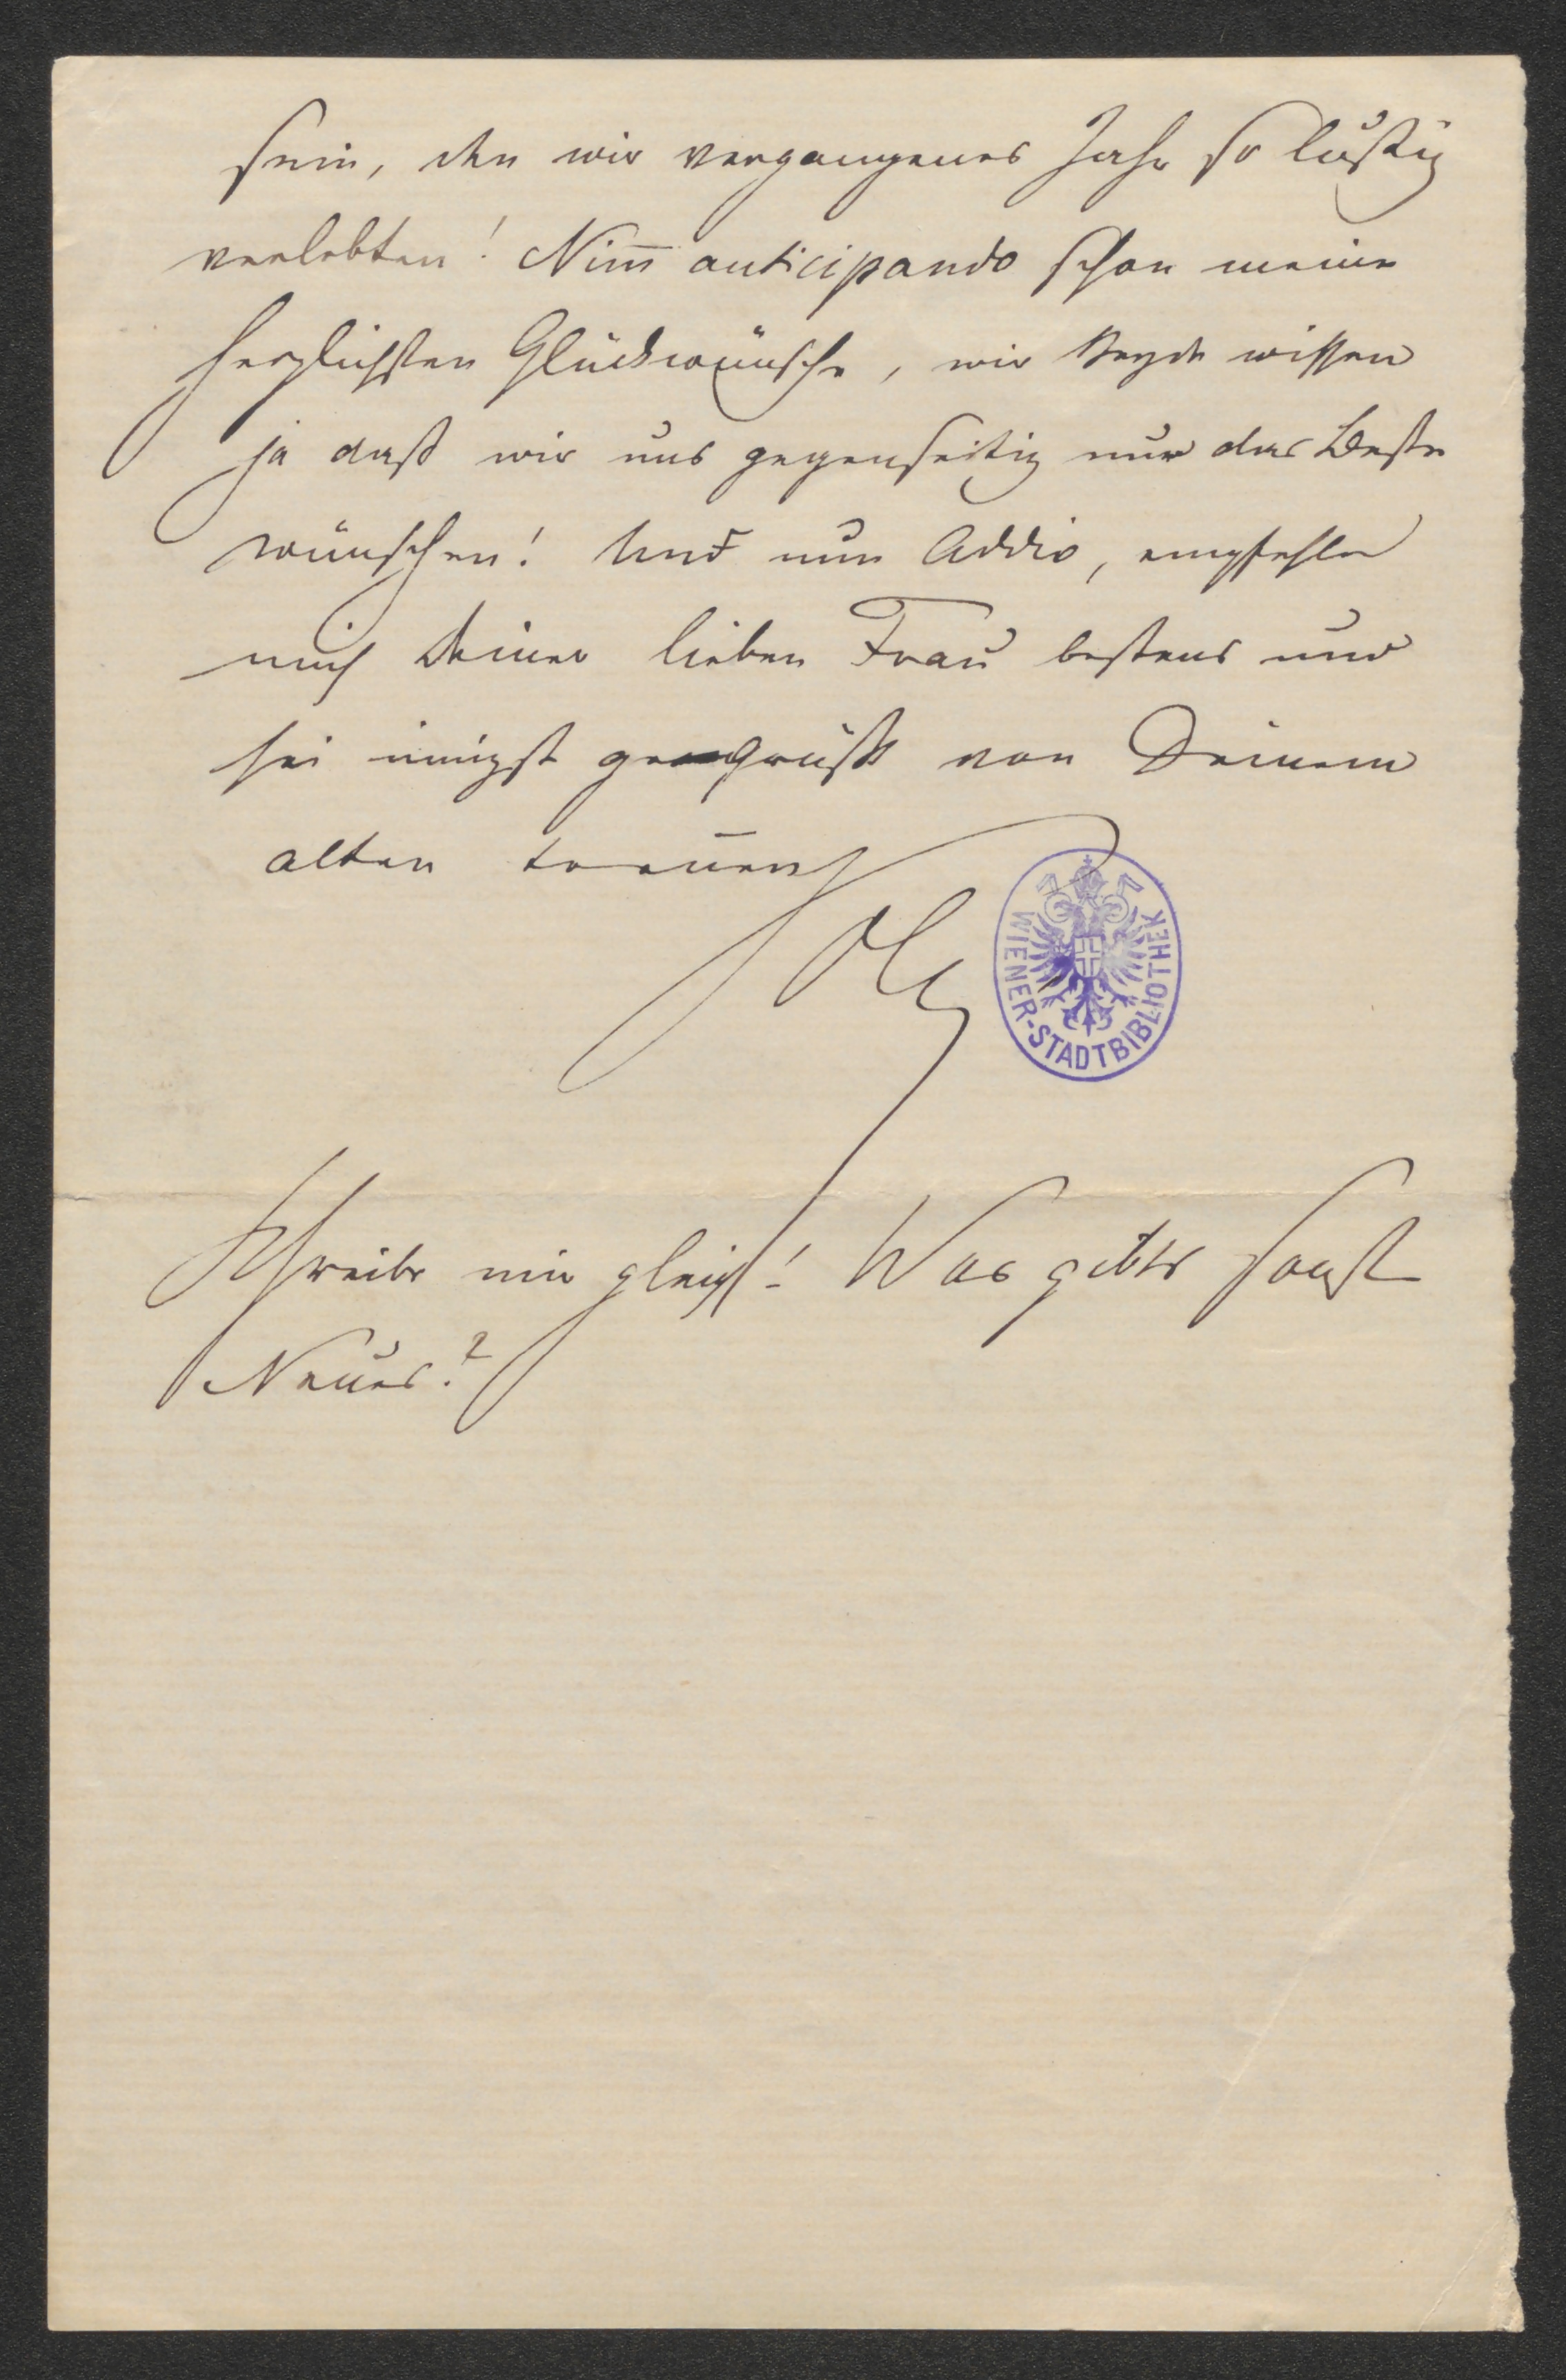 sein, den wir vergangenes Jahr so lustig
verlebten! Nim̅ anticipando schon meine
herzlichsten Glückwünsche, wir Beyde wissen
ja daß wir uns gegenseitig nur das Beste
wünschen! Und nun Addio, empfehle
mich Deiner lieben Frau bestens und
sei innigst gegrüßt von Deinem
alten treuen
WIENER-STADTBIBLIOTHEK
Schreibe mir gleich! Was gibts sonst
Neues?